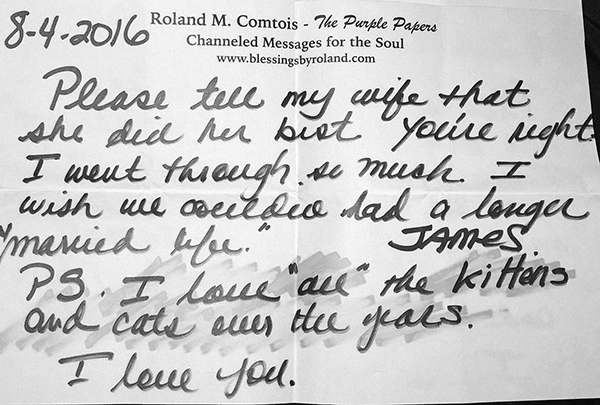 8-4-2016
Roland M. Comtois - The Purple Papers
Channeled Messages for the Soul
www.blessingsbyroland.com
Please tell my wife that
she did her best You're right.
I went through so much. I
wish we could had a longer
"married life." JAMES.
PS. I love "all" the kittens
and cats over the years.
I love you.